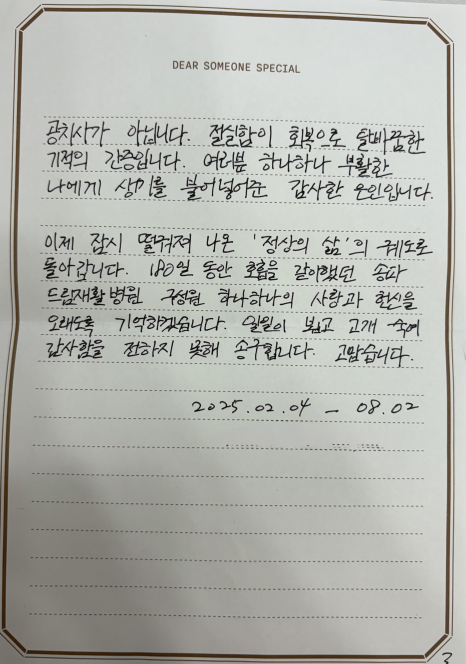 DEAR SOMEONE SPECIAL
공치사가 아닙니다. 절실함이 회복으로 탈바꿈한
기적의 간증입니다. 여러분 하나하나 부활한
나에게 생명을 불어넣어준 감사한 은인입니다.
이제 잠시 떨궈져 나온 '정상의 삶'의 궤도로
돌아갑니다. 180일 동안 호흡을 같이했던 송파
드림재활병원 구성원 하나하나의 사랑과 헌신을
오래도록 기억하겠습니다. 일일이 뵙고 고개 숙여
감사함을 전하지 못해 송구합니다. 고맙습니다.
2025.02.04 - 08.02
3